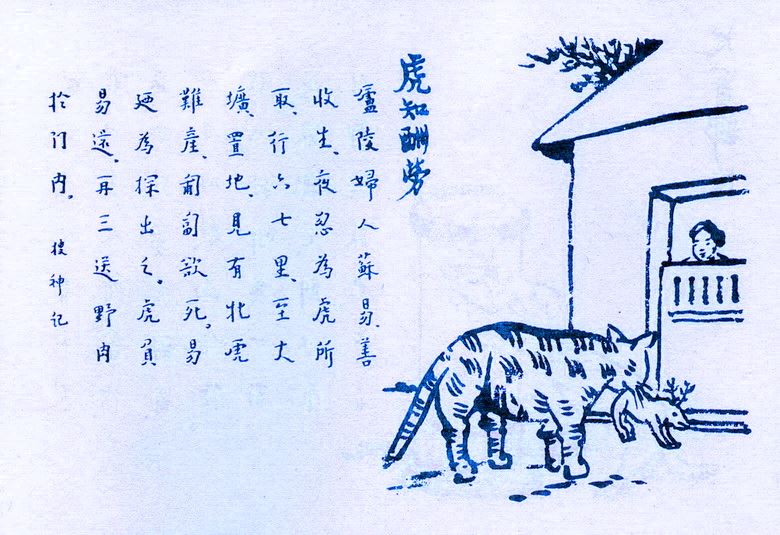 虎知酬勞
廬陵婦人蘇易、善
收生、夜忽為虎所
取、行六七里、至大
壙、置地、見有牝虎
難產、匍匐欲死。易
廼為探出之。虎負
易還、再三送野肉
扵门內。 搜神记